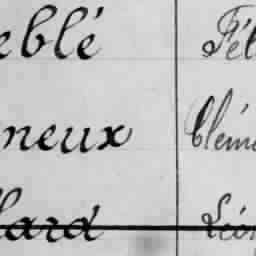 eblé Fél
neux Cléme
lard Léon